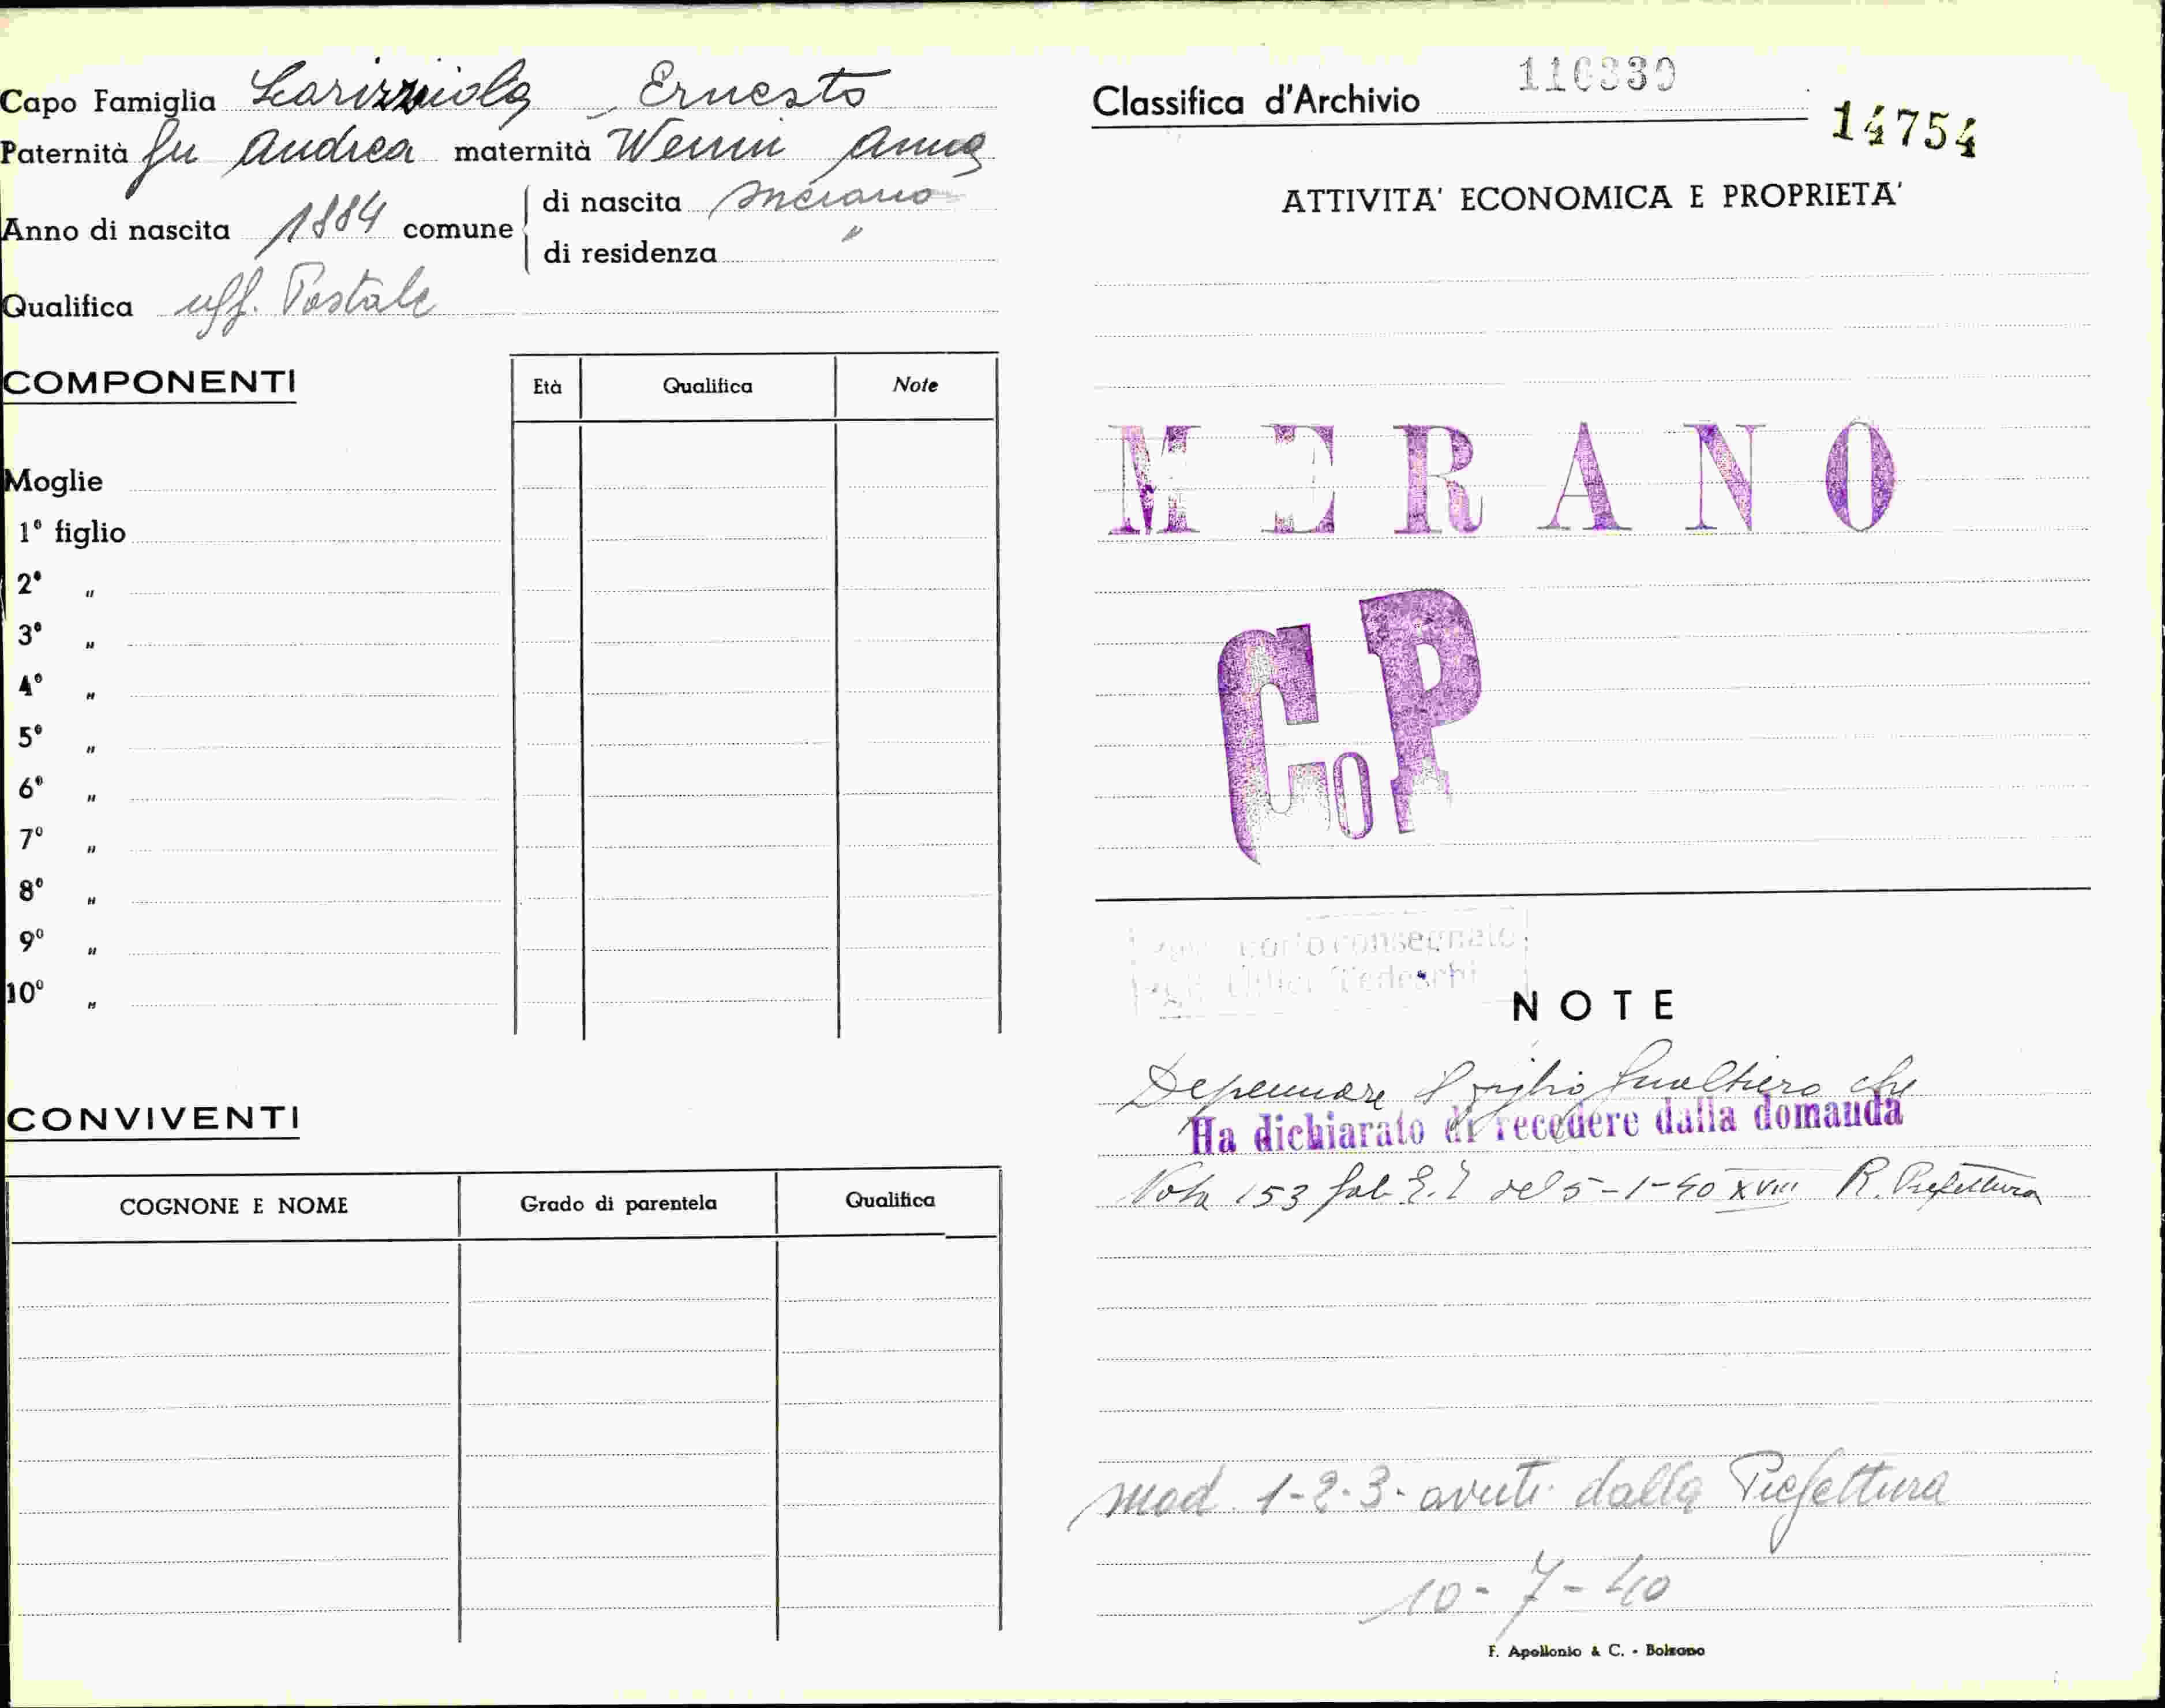 Capo Famiglia Ernesto
Paternità fu Andrea maternità Anna
Anno di nascita 1884 comune
di nascita Merano
di residenza "
Qualifica uff. Postale
COMPONENTI
Età Qualifica Note
Moglie
1° figlio
2° "
3° "
4° "
5° "
6° "
7° "
8° "
9° "
10° "
CONVIVENTI
COGNONE E NOME Grado di parentela Qualifica
Classifica d'Archivio 110339
14754
ATTIVITA' ECONOMICA E PROPRIETA'
MERANO
CoP
consegnato
Uffici Tedeschi
NOTE
Depennare il figlio Gualtiero che
Ha dichiarato di recedere dalla domanda
Nota 153 del 5-1-40 XVIII R. Prefettura
mod. 1-2-3- avuti dalla Prefettura
10-7-40
F. Apollonio & C. - Bolzano